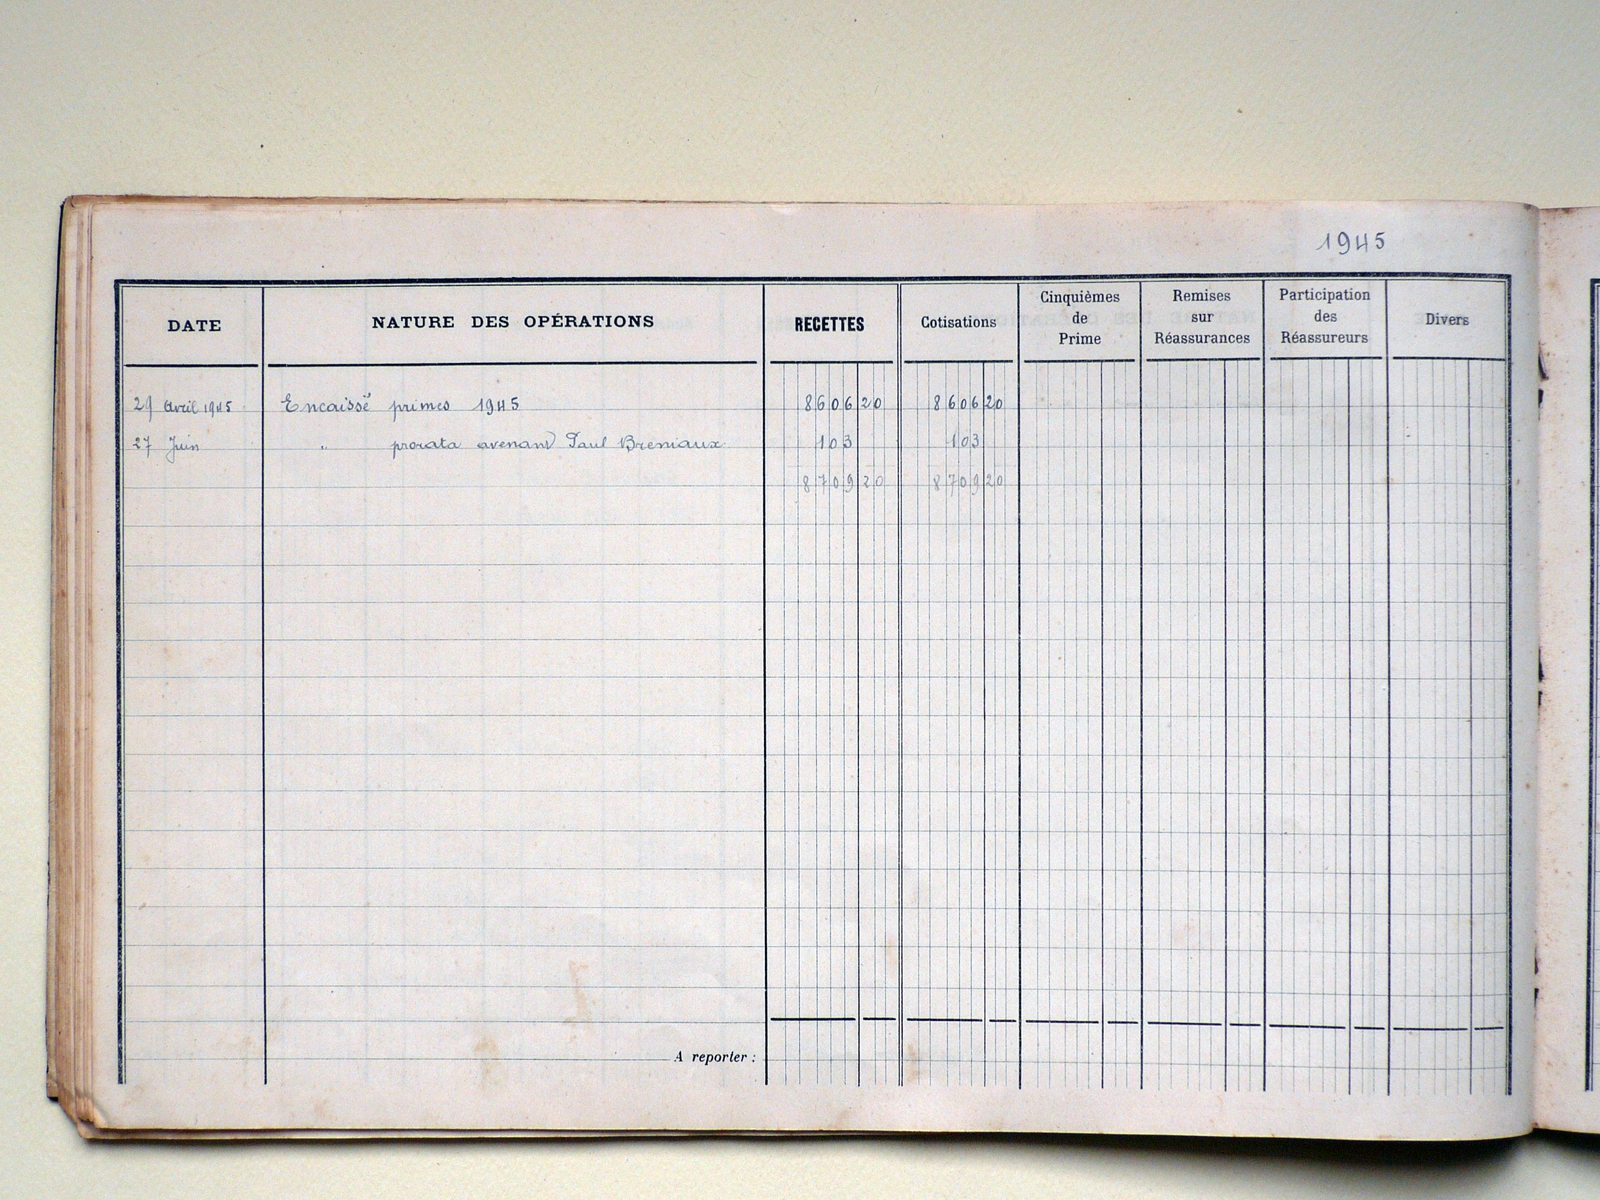 1945
DATE NATURE DES OPÉRATIONS RECETTES Cotisations Cinquièmes de Prime Remises sur Réassurances Participation des Réassureurs Divers
29 Avril 1945 Encaissé primes 1945 8606 20 8606 20
27 Juin " prorata avenant Paul Breniaux 103 103
8709 20 8709 20
A reporter :